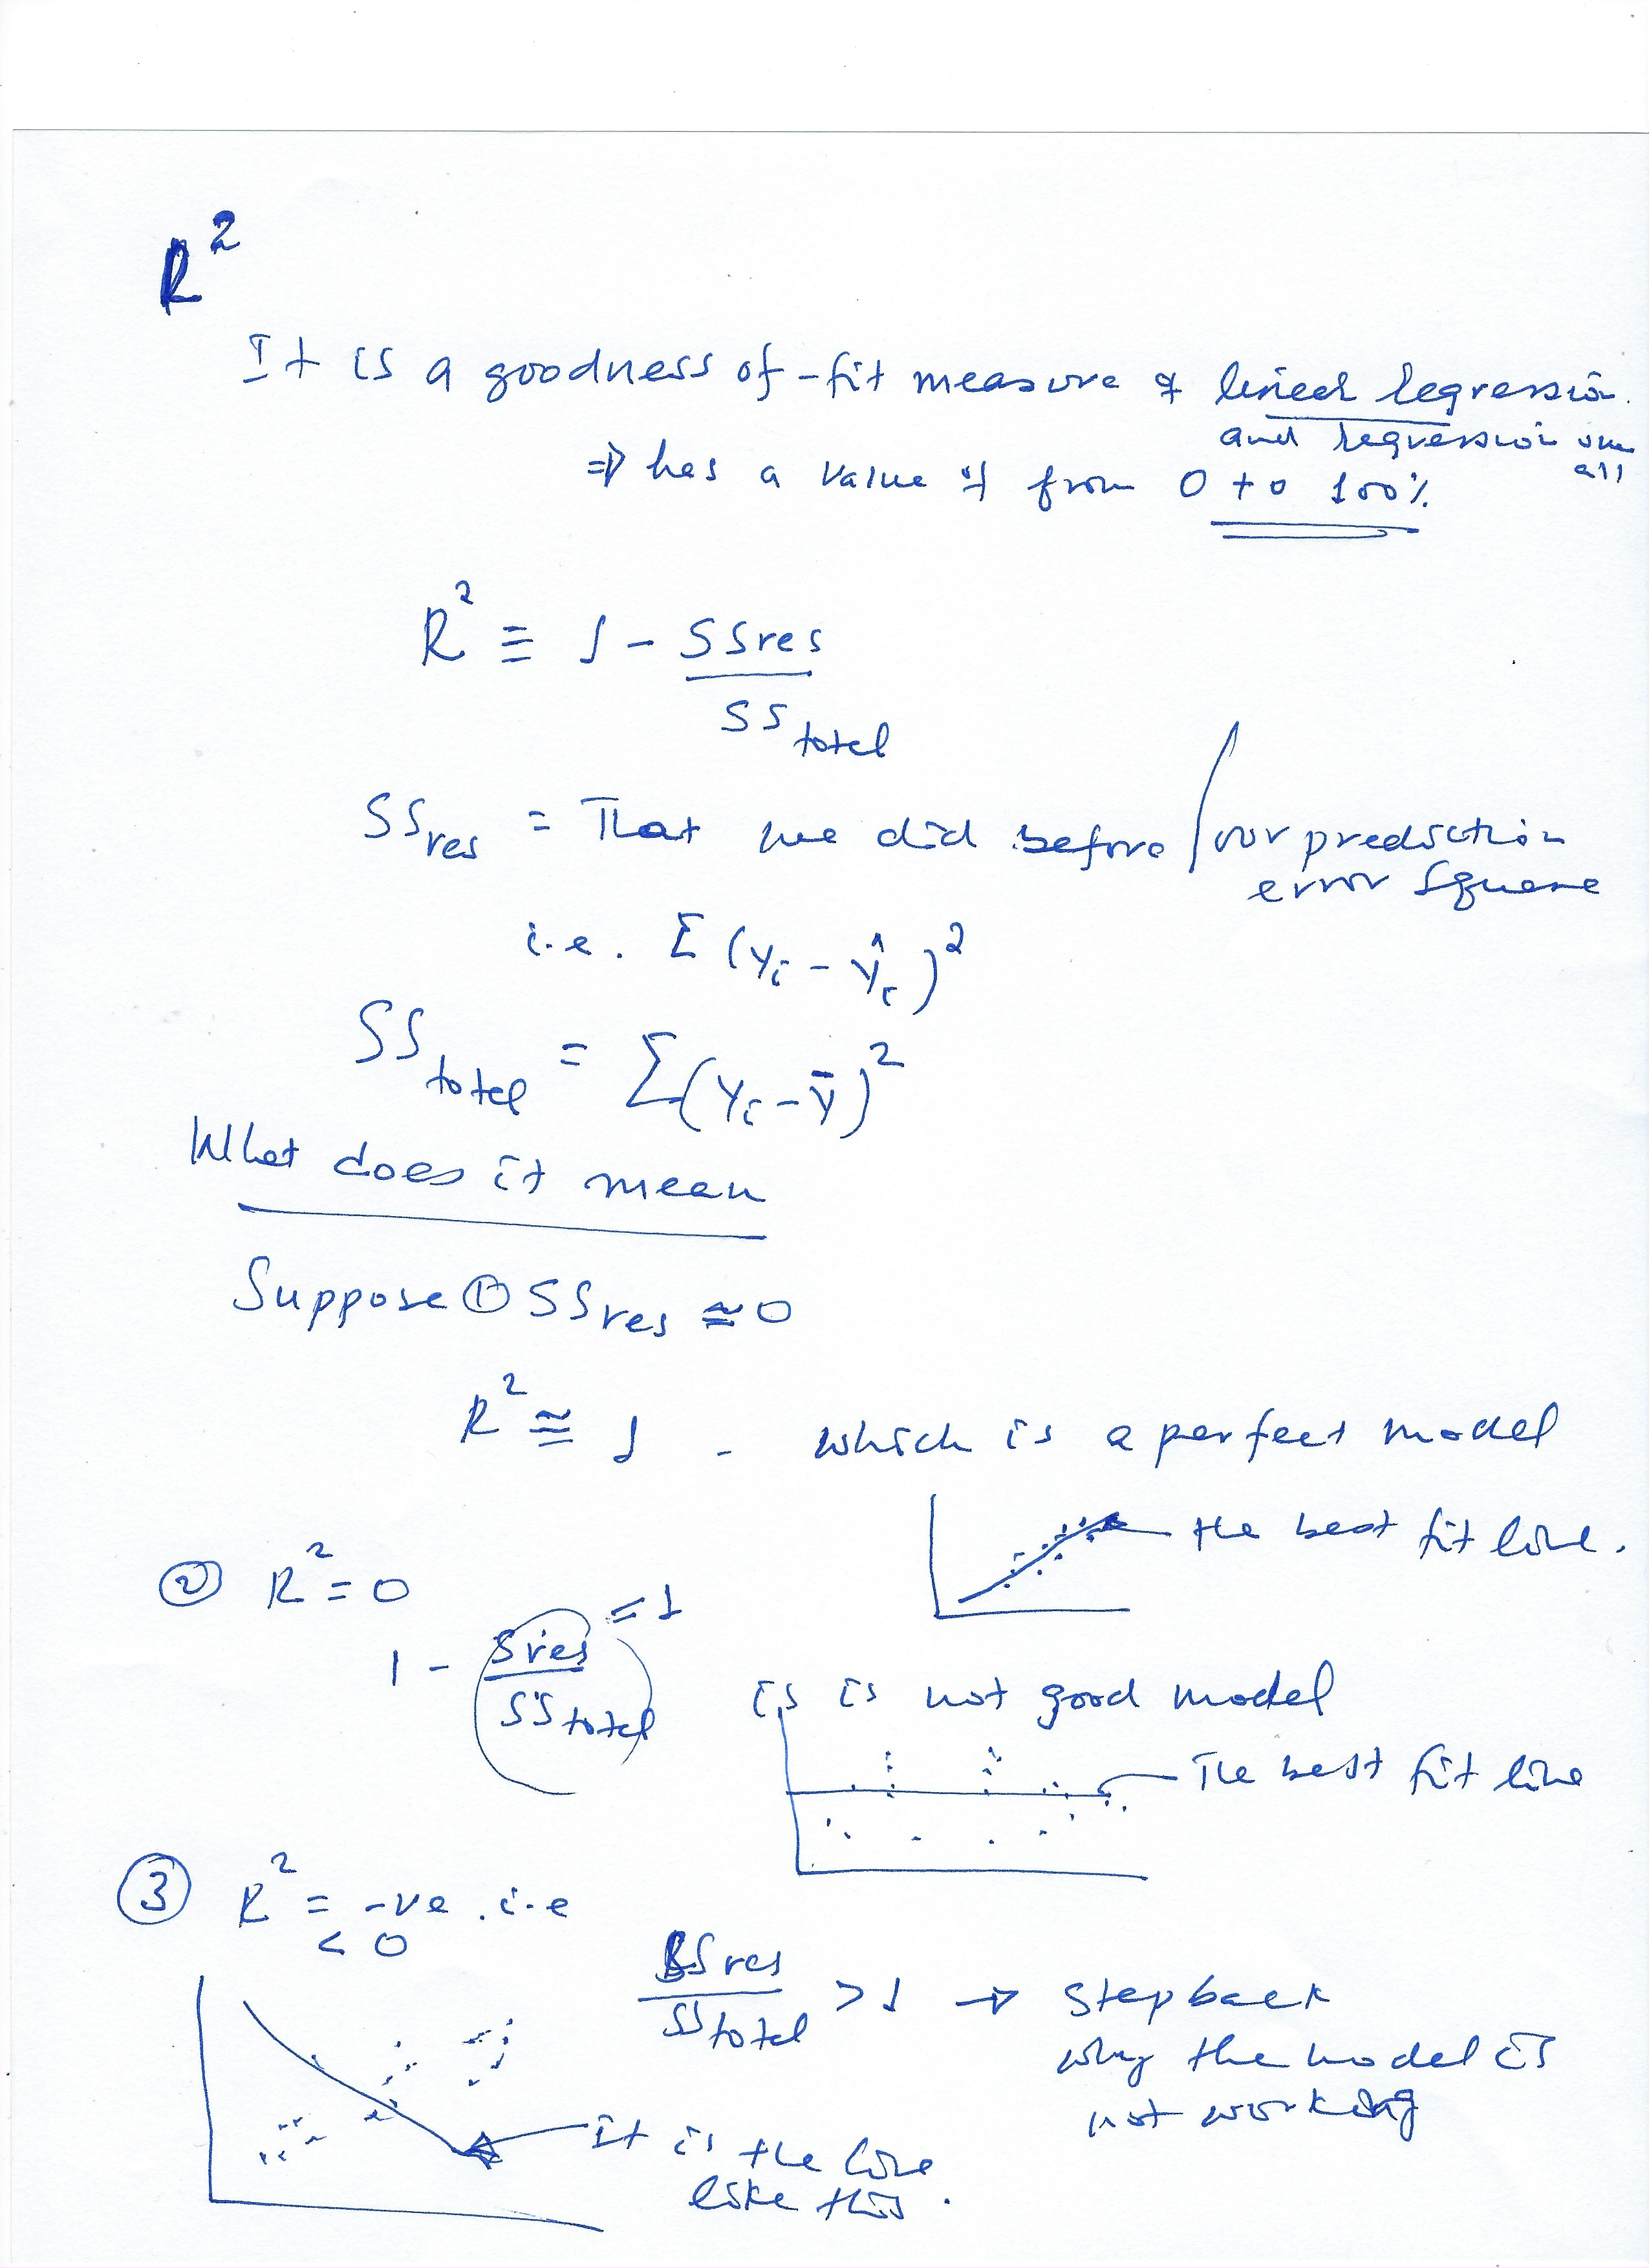 R²
It is a goodness of-fit measure of linear regression.
and regression over all
⇒ has a value of from 0 to 100%
R² ≡ 1 - SSres
SS total
SSres = That we did before / our prediction
error square
i.e. Σ(yi - ŷi)²
SS total = Σ(yi - ȳ)²
What does it mean
Suppose ① SSres ≈ 0
R² ≅ 1 - which is a perfect model
the best fit line.
② R² = 0
1 - Sres = 1
SS total
is is not good model
The best fit line
③ R² = -ve . i.e
< 0
SSres
SS total > 1 → Step back
why the model is
not working
It is the line
like this.